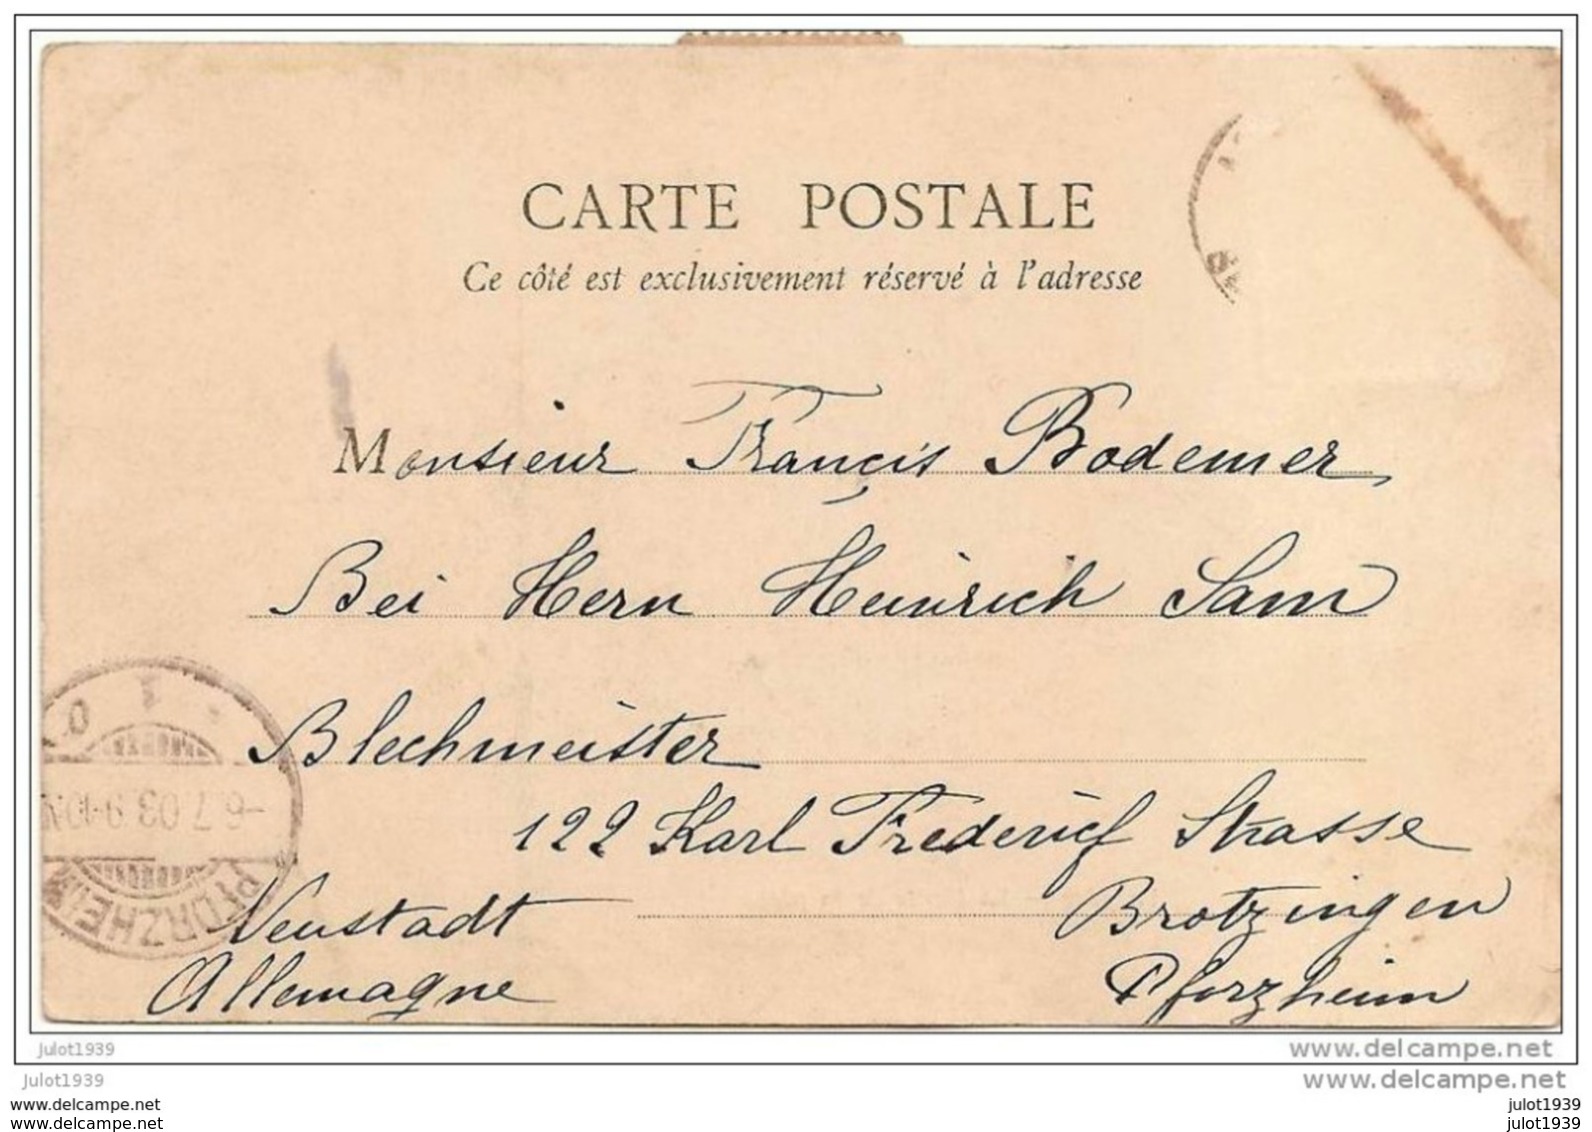 CARTE POSTALE
Ce côté est exclusivement réservé à l'adresse
Monsieur Françis Bodemer
Bei Hern Heinrich Sam
Blechmeister
122 Karl Frederich Strasse
Neustadt Brotzingen
Allemagne Pforzheim
PFORZHEIM
-6.7.03.9-10N
1
julot1939
www.delcampe.net
julot1939
www.delcampe.net
www.delcampe.net
julot1939
www.delcampe.net
julot1939